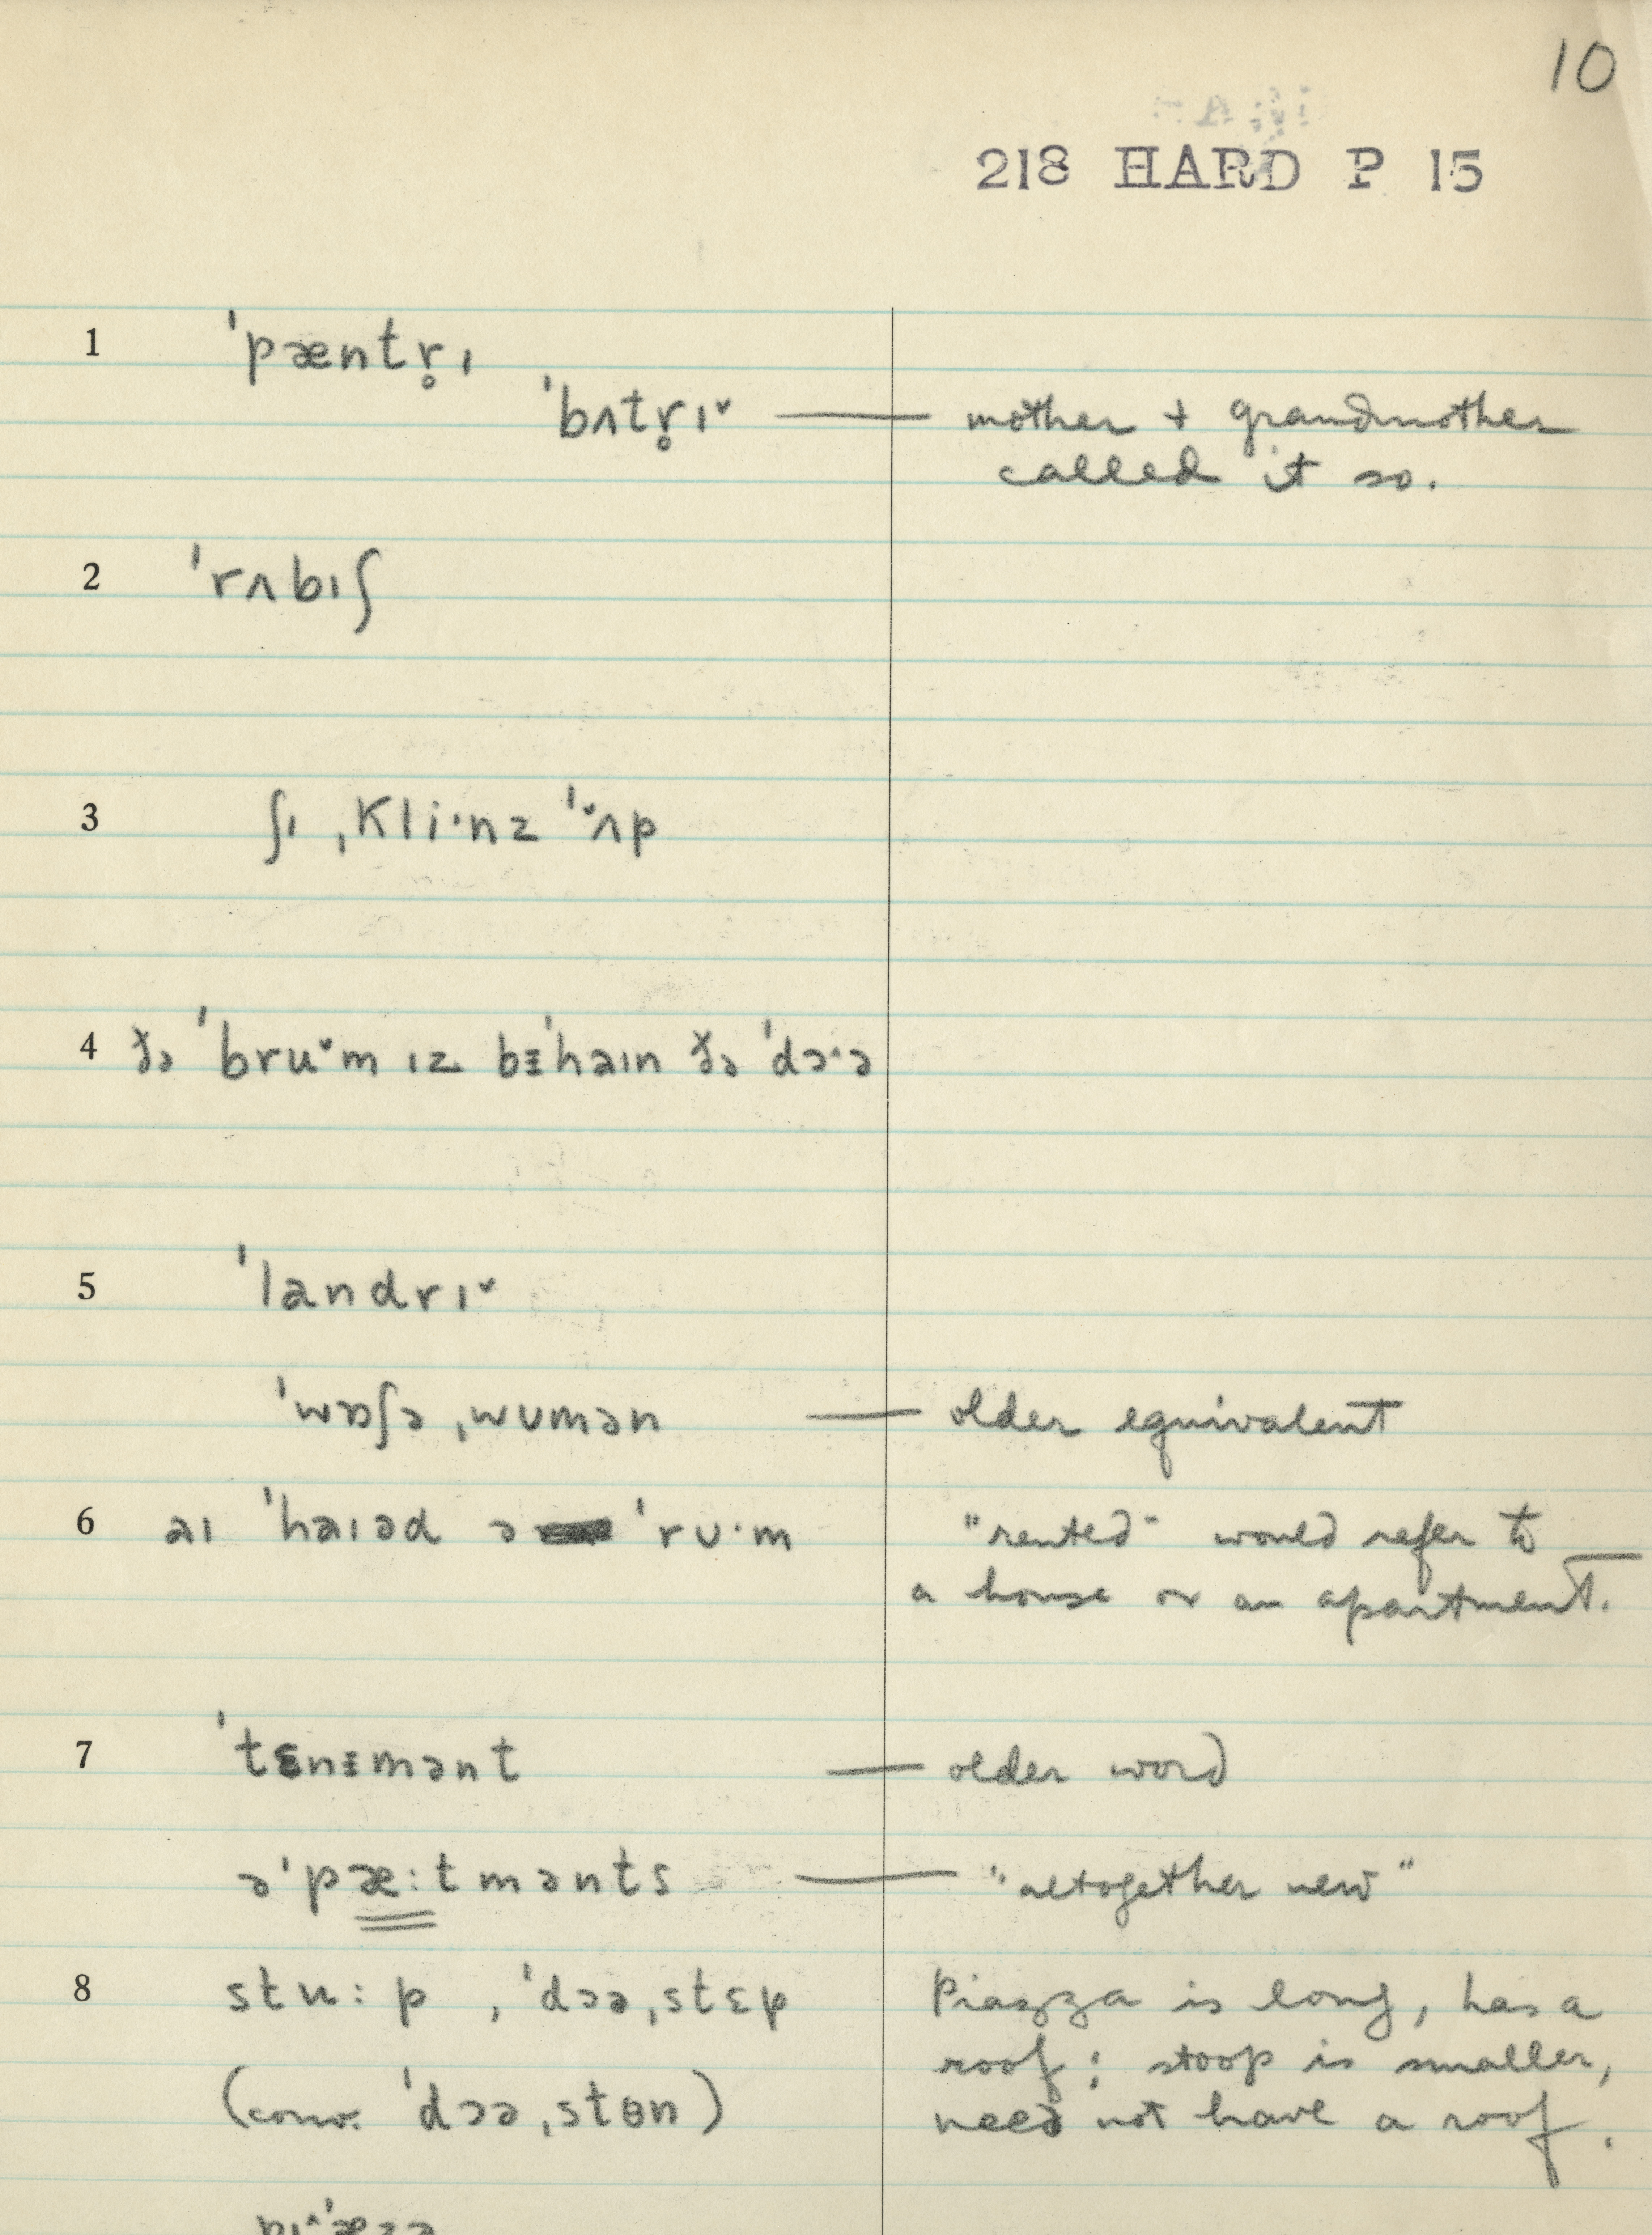 10
218 HARD P 15
1 ˈpæntr̥ɪ
ˈbʌtr̥ɪˇ — mother + grandmother
called it so.
2 ˈrʌbɪʃ
3 ʃɪ ˌkli·nz ˈˇʌp
4 ðə ˈbruˇm ɪz bᵻˈhaɪn ðə ˈdɔ·ə
5 ˈlandrɪˇ
ˈwɒʃə ˌwumən — older equivalent
6 aɪ ˈhaɪəd ə ˈrʊ·m "rented" would refer to
a house or an apartment.
7 ˈtɛnᵻmənt — older word
əˈpæ:tmənts — "altogether new"
8 stu:p , ˈdɔə ˌstɛp Piazza is long, has a
roof; stoop is smaller,
(conv. ˈdɔə ˌstɵn) need not have a roof.